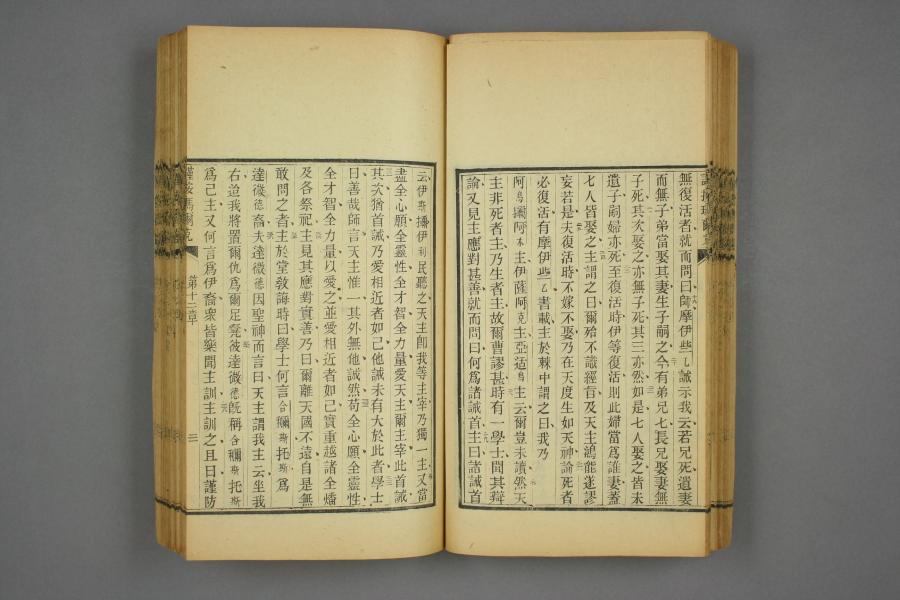 無復活者就而問曰師摩伊些乙誡示我云若兄死遺妻
而無子弟當娶其妻生子嗣之今有弟兄七長兄娶妻無
子死其次娶之亦無子死其三亦然如是七人娶之皆未
遺子嗣婦亦死至復活時伊等復活則此婦當爲誰妻蓋
七人皆娶之主謂之曰爾殆不識經旨及天主鴻能遂謬
妄若是夫復活時不嫁不娶乃在天度生如天神論死者
必復活有摩伊些乙書載主於棘中謂之曰我乃
阿烏爛阿木主伊薩阿克主亞适烏主云爾豈未讀然天
主非死者主乃生者主故爾曹謬甚時有一學士聞其辯
論又見主應對甚善就而問曰何爲諸誡首主曰諸誡首
云伊斯擂伊利民聽之天主卽我等主宰乃獨一主又當
盡全心願全靈性全才智全力量愛天主爾主宰此首誡
其次猶首誡乃愛相近者如己他誡未有大於此者學士
曰善哉師言天主惟一其外無他誡然苟全心願全靈性
全才智全力量以愛之並愛相近者如己實重越諸全燔
及各祭祀主見其應對實善乃曰爾離天國不遠自是無
敢問之者主於堂敎誨時曰學士何言合爾斯托斯爲
達微德裔夫達微德因聖神而言曰天主謂我主云坐我
右迨我將置爾仇爲爾足凳彼達微德旣稱合爾斯托斯
爲己主又何言爲伊裔衆皆樂聞主訓主訓之且曰謹防
第十二章